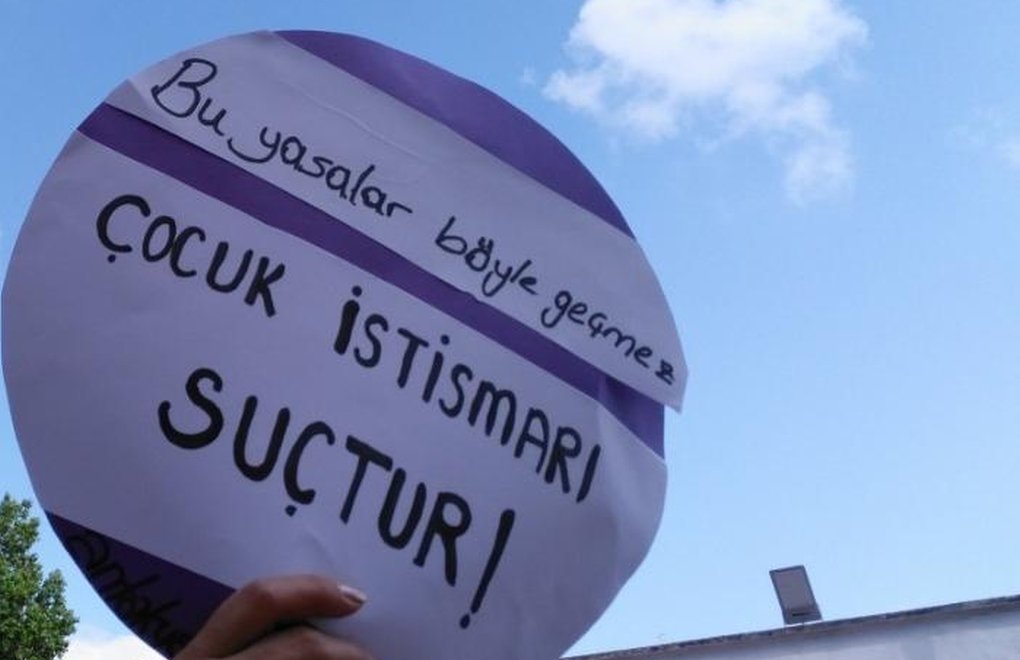 Bu yasalar böyle geçmez
ÇOCUK İSTİSMARI
SUÇTUR!